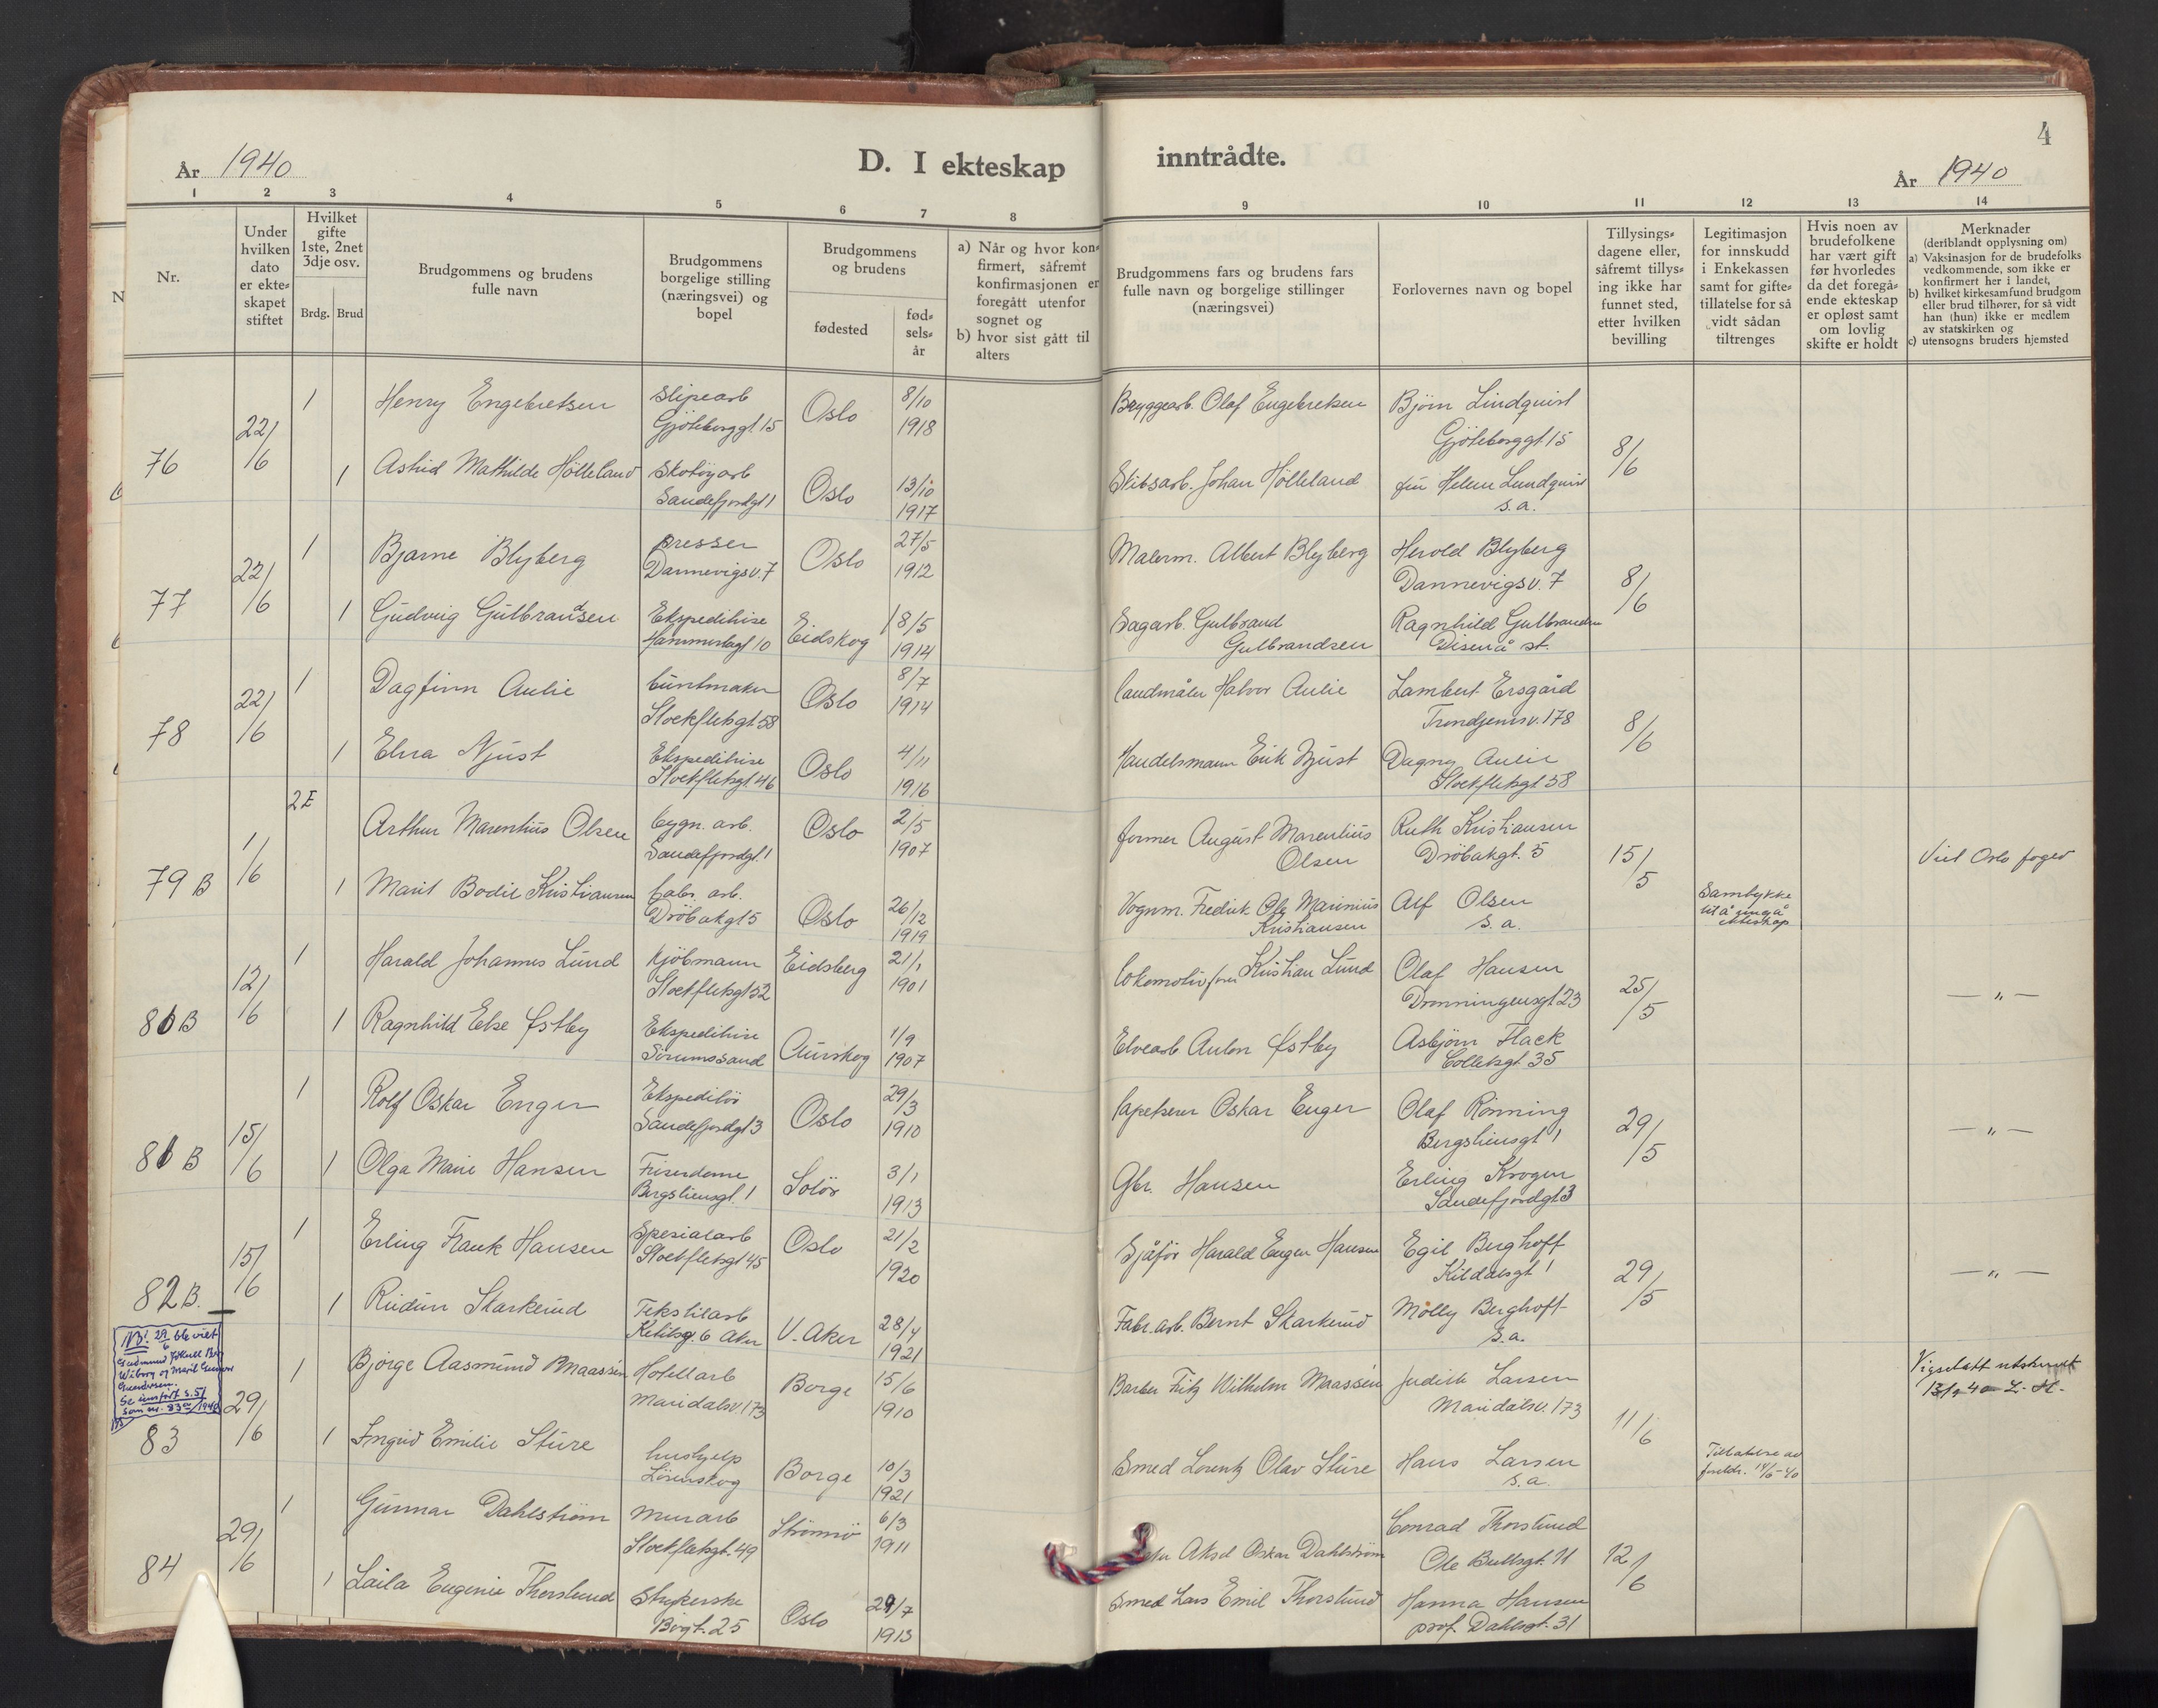 År 1940
D. I ekteskap inntrådte.
4
År 1940
1 2 3 4 5 6 7 8 9 10 11 12 13 14
Nr.
Under
hvilken
dato
er ekte-
skapet
stiftet
Hvilket
gifte
1ste, 2net
3dje osv.
Brdg. Brud
Brudgommens og brudens
fulle navn
Brudgommens
borgelige stilling
(næringsvei) og
bopel
Brudgommens
og brudens
fødested
fød-
sels-
år
a) Når og hvor kon-
firmert, såfremt
konfirmasjonen er
foregått utenfor
sognet og
b) hvor sist gått til
alters
Brudgommens fars og brudens fars
fulle navn og borgelige stillinger
(næringsvei)
Forlovernes navn og bopel
Tillysings-
dagene eller,
såfremt tillys-
ing ikke har
funnet sted,
etter hvilken
bevilling
Legitimasjon
for innskudd
i Enkekassen
samt for gifte-
tillatelse for så
vidt sådan
tiltrenges
Hvis noen av
brudefolkene
har vært gift
før hvorledes
da det foregå-
ende ekteskap
er opløst samt
om lovlig
skifte er holdt
Merknader
(deriblandt opplysning om)
a) Vaksinasjon for de brudefolks
vedkommende, som ikke er
konfirmert her i landet,
b) hvilket kirkesamfund brudgom
eller brud tilhører, for så vidt
han (hun) ikke er medlem
av statskirken og
c) utensogns bruders hjemsted
76 22/6
1 Henry Engebretsen
slipearb
Gjøteborggt. 15
Oslo
8/10
1918
Bryggearb. Olaf Engebretsen
Bjørn Lindquist
Gjøteborggt. 15
8/6
1 Astrid Mathilde Hølleland
Skotøyarb
Sandefjordgt 1
Oslo
13/10
1917
Johan Hølleland
Helene Lundquist
s.a.
77 22/6
1 Bjarne Blyberg
presser
Dannevigsv. 7
Oslo
27/5
1912
Malerm. Albert Blyberg
Herold Blyberg
Dannevigsv. 7
8/6
1 Gudveig Gulbrandsen
Ekspeditrise
Hammerstagt 10
Eidskog
18/5
1914
Sagarb. Gulbrand
Gulbrandsen
Ragnhild Gulbrandsen
Disenå st.
78 22/6
1 Dagfinn Aulie
buntmaker
Stockfletsgt. 58
Oslo
8/7
1914
landmåler Halvor Aulie
Lambert Ersgård
Trondjemsv. 178
8/6
1 Elna Njust
Ekspeditrise
Stockfletsgt. 46
Oslo
4/11
1916
Handelsmann Erik Njust
Dagny Aulie
Stockfletsgt. 58
79 B 1/6
2 E Arthur Marentius Olsen
bygn. arb.
Sandefjordgt. 1
Oslo
2/5
1907
former August Marentius
Olsen
Ruth Kristiansen
Drøbakgt. 5
15/5
Viet Oslo foged
1 Marit Bodil Kristiansen
fabr. arb.
Drøbakgt 5
Oslo
26/12
1919
Vognm. Fredrik Ole Marinius
Kristiansen
Alf Olsen
s.a.
Samtykke
til å inngå
ekteskap
80 B 12/6
1 Harald Johannes Lund
Kjøbmann
Stockfletsgt 52
Eidsberg
21/1
1901
lokomotivfører Kristian Lund
Olaf Hansen
Dronningensgt 23
25/5
— " —
1 Ragnhild Else Østby
Ekspeditrise
Sørumsand
Aurskog
1/9
1907
Elvearb Anton Østby
Asbjørn Flack
Colletsgt. 35
81 B 15/6
1 Rolf Oskar Enger
Ekspeditør
Sandefjordgt 3
Oslo
29/3
1910
tapetserer Oskar Enger
Olaf Rønning
Bergsliensgt 1
29/5
— " —
1 Olga Marie Hansen
Friserdame
Bergsliensgt. 1
Solør
3/1
1913
Gbr. Hansen
Erling Krogen
Sandefjordgt 3
82 B. 15/6
1 Erling Frank Hansen
Spesialarb
Stockfletsgt 45
Oslo
21/2
1920
Sjåfør Harald Eugen Hansen
Egil Berghoff
Kildalsgt 1
29/5
— " —
1 Rudun Skarkerud
Tekstilarb
V. Aker
28/4
1921
Fabr. arb. Bernt Skarkerud
Molly Berghoff
s.a.
NB! 29/6 ble viet
Se innført s. 51
som nr. 83a/1940
83 29/6
1 Bjørge Aasmund Maassén
Hotellarb
Maridalsv. 173
Borge
15/6
1910
Barber Fritz Wilhelm Maassén
Judith Larsen
Maridalsv. 173
11/6
Vigselatt utskrevet
1 Ingrid Emilie Sture
hushjelp
Lørenskog
Borge
10/3
1921
Smed Lorentz Olav Sture
Hans Larsen
s.a.
Tillatelse av
foreldr. 14/6-40
84 29/6
1 Gunnar Dahlstrøm
Murarb
Stockfletsgt. 49
Strømmø
6/3
1911
Aksel Oskar Dahlstrøm
Conrad Thorslund
Ole Bullsgt. 11
12/6
1 Laila Eugenie Thorslund
Strykerske
Bøgt. 25
Oslo
29/7
1913
Smed Lars Emil Thorslund
Hanna Hansen
prof. Dahlsgt. 31